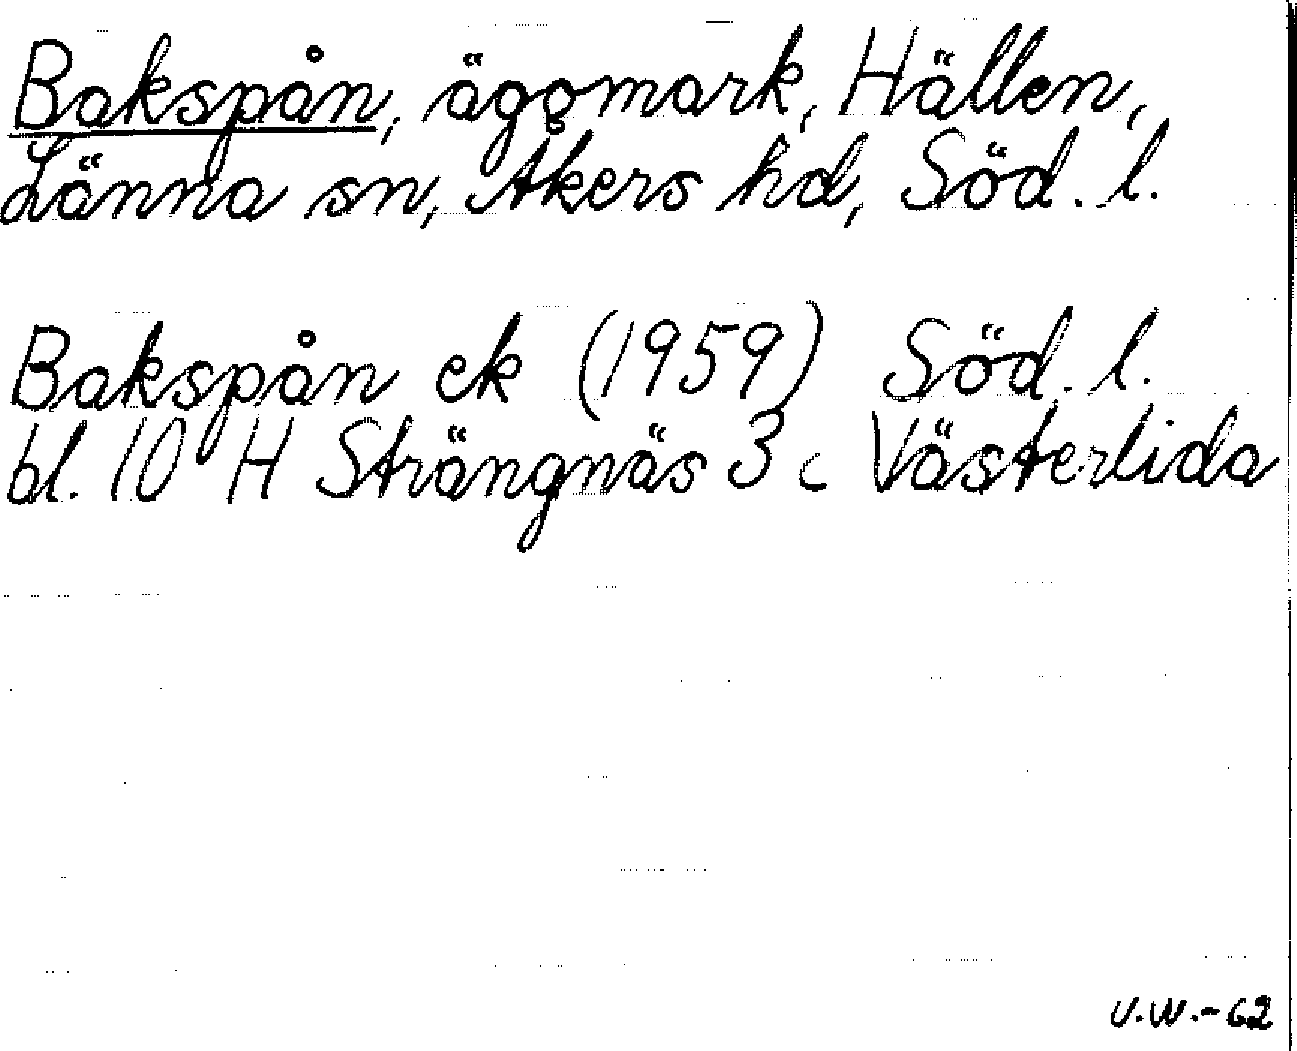 Bakspån, ägomark, Hällen,
Länna sn, Åkers hd, Söd. l.
Bakspån ek (1959) Söd. l.
bl. 10 H Strängnäs 3 c Västerlida
V.W.-62